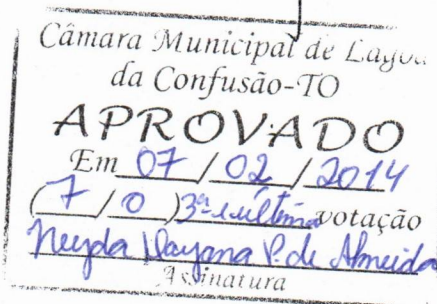 Câmara Municipal de Lagoa
da Confusão-TO
APROVADO
Em 07 / 02 / 2014
( 7 / 0 ) 3ª e última votação
Neyda Dayana P. de Almeida
Assinatura